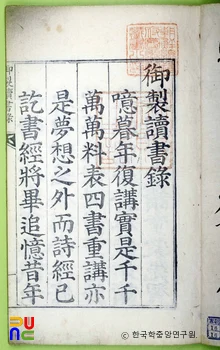 御製讀書錄
噫暮年復講實是千千
萬萬料表四書重講亦
是夢想之外而詩經已
訖書經將畢追憶昔年
御製讀書錄
PUNC
© 한국학중앙연구원